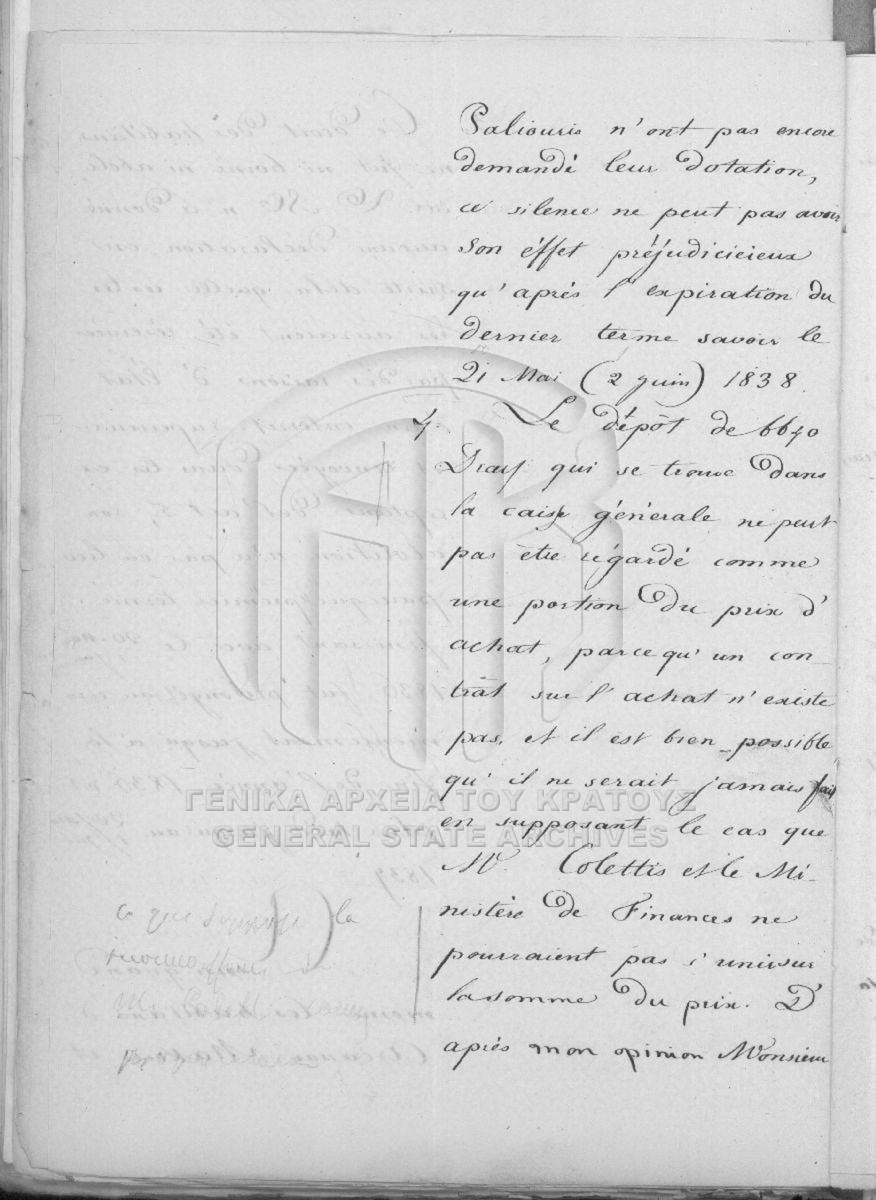 Paliouris n'ont pas encore
demandé leur Dotation,
ce silence ne peut pas avoir
son éffet préjudicieieux
qu'aprés l'expiration du
dernier terme savoir le
21 Mai (2 juin) 1838.
4 Le dépôt de 6640
qui se trouve dans
la caisse génerale ne peut
pas être régardé comme
une portion du prix d'
achat, parcequ'un con
trât sur l'achat n'existe
pas, et il est bien possible
qu'il ne serait jamais fait
en supposant le cas que
M. Colettis et le Mi-
nistère de Finances ne
pourraient pas s'unir sur
la somme du prix. D'
aprés mon opinion Monsieur
ce que la
ΓΕΝΙΚΑ ΑΡΧΕΙΑ ΤΟΥ ΚΡΑΤΟΥΣ
GENERAL STATE ARCHIVES